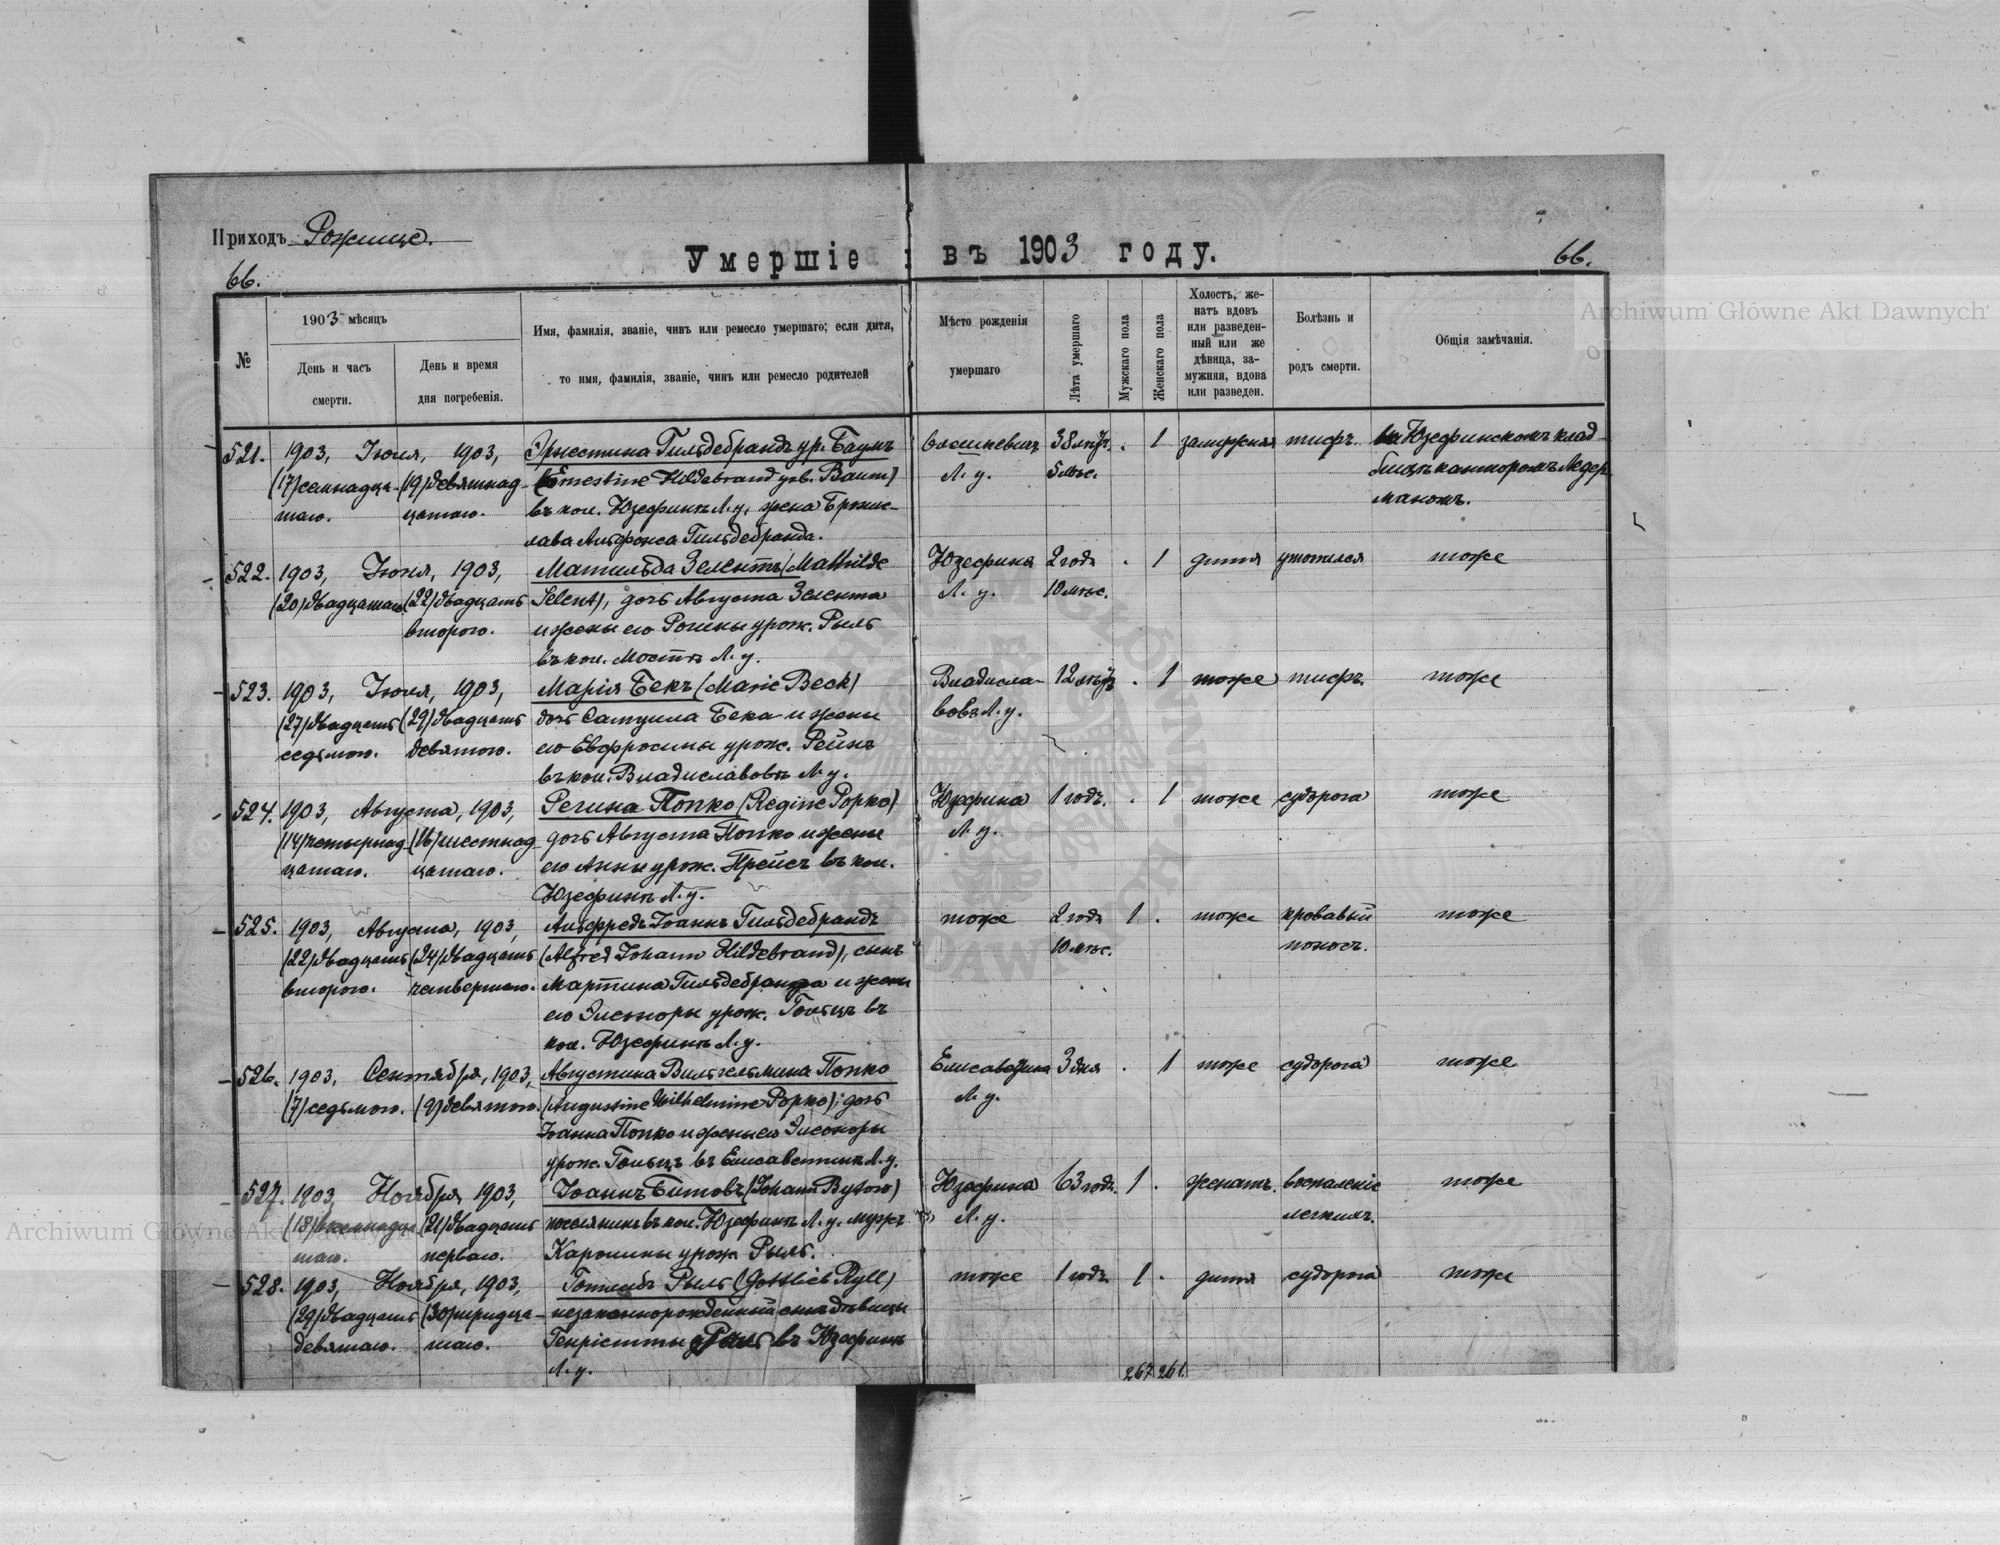 Приходъ Рожище.
Умершіе въ 1903 году.
66.
66.
№
1903 мѣсяцъ
День и часъ
смерти.
День и время
дня погребенія.
Имя, фамилія, званіе, чинъ или ремесло умершаго; если дитя,
то имя, фамилія, званіе, чинъ или ремесло родителей
Мѣсто рожденія
умершаго
Лѣта умершаго
Мужскаго пола
Женскаго пола
Холостъ, же-
натъ вдовъ
или разведен-
ный или же
дѣвица, за-
мужняя, вдова
или разведен.
Болѣзнь и
родъ смерти.
Общія замѣчанія.
521. 1903, Іюня, 1903,
(17) семнадца-
таго.
(19) девятнад-
цатаго.
Эрнестина Гильдебрандъ ур. Баумъ
(Ernestine Hildebrand geb. Baum)
въ кол. Юзефинѣ Л. у. жена Брони-
слава Альфонса Гильдебранда.
Л. у.
38 лѣтъ.
5 мѣс.
. 1 замужняя тифъ.
на Юзефинскомъ клад-
бищѣ канторомъ Ледер
маномъ.
522. 1903, Іюня, 1903,
(20) двадцатаго
(22) двадцать
второго.
Матильда Зелентъ (Mathilde
Selent), дочь Августа Зелента
и жены его Розины урож. Рыль
въ кол. Мостѣ Л. у.
Юзефина
Л. у.
2 года
10 мѣс.
. 1 дитя утопился тоже
523. 1903, Іюня, 1903,
(27) двадцать
седьмого.
(29) двадцать
девятого.
Марія Бекъ (Marie Beck)
дочь Самуила Бека и жены
его Евфросины урож. Рейнъ
въ кол. Владиславовѣ Л. у.
Владисла-
вовъ Л. у.
12 лѣтъ
. 1 тоже тифъ. тоже
524. 1903, Августа, 1903,
(14) четырнад-
цатаго.
(16) шестнад-
цатаго.
Регина Попко (Regine Popko)
дочь Августа Попко и жены
его Анны урож. Прейсъ въ кол.
Юзефинѣ Л. у.
Юзефина
Л. у.
1 годъ.
. 1 тоже судорога тоже
525. 1903, Августа, 1903,
(22) двадцать
второго.
(24) двадцать
четвертаго.
Альфредъ Іоаннъ Гильдебрандъ
(Alfred Johann Hildebrand), сынъ
Мартина Гильдебранда и жены
его Элеоноры урож. Гольцъ въ
кол. Юзефинѣ Л. у.
тоже
2 года
10 мѣс.
1 . тоже кровавый
поносъ.
тоже
526. 1903, Сентября, 1903,
(7) седьмого. (9) девятого.
Августина Вильгельмина Попко
(Augustine Wilhelmine Popko), дочь
Іоанна Попко и жены его Элеоноры
урож. Гольцъ въ Елисаветинѣ Л. у.
Елисаветина
Л. у.
3 дня
. 1 тоже судорога тоже
527. 1903, Ноября, 1903,
(18) восемнадца-
таго.
(21) двадцать
перваго.
Іоаннъ Битовъ (Johann Bytow)
поселянинъ въ кол. Юзефинѣ Л. у. мужъ
Каролины урож. Рыль.
Юзефина
Л. у.
63 года.
1 . женатъ. воспаленіе
легкихъ.
тоже
528. 1903, Ноября, 1903,
(29) двадцать
девятаго.
(30) тридца-
таго.
Готлибъ Рыль (Gottlieb Ryll)
незаконнорожденный сынъ дѣвицы
Генріетты Рыль въ Юзефинѣ
Л. у.
тоже
1 годъ.
1 . дитя судорога тоже
267 261.
Archiwum Główne Akt Dawnych
Archiwum Główne Akt Dawnych